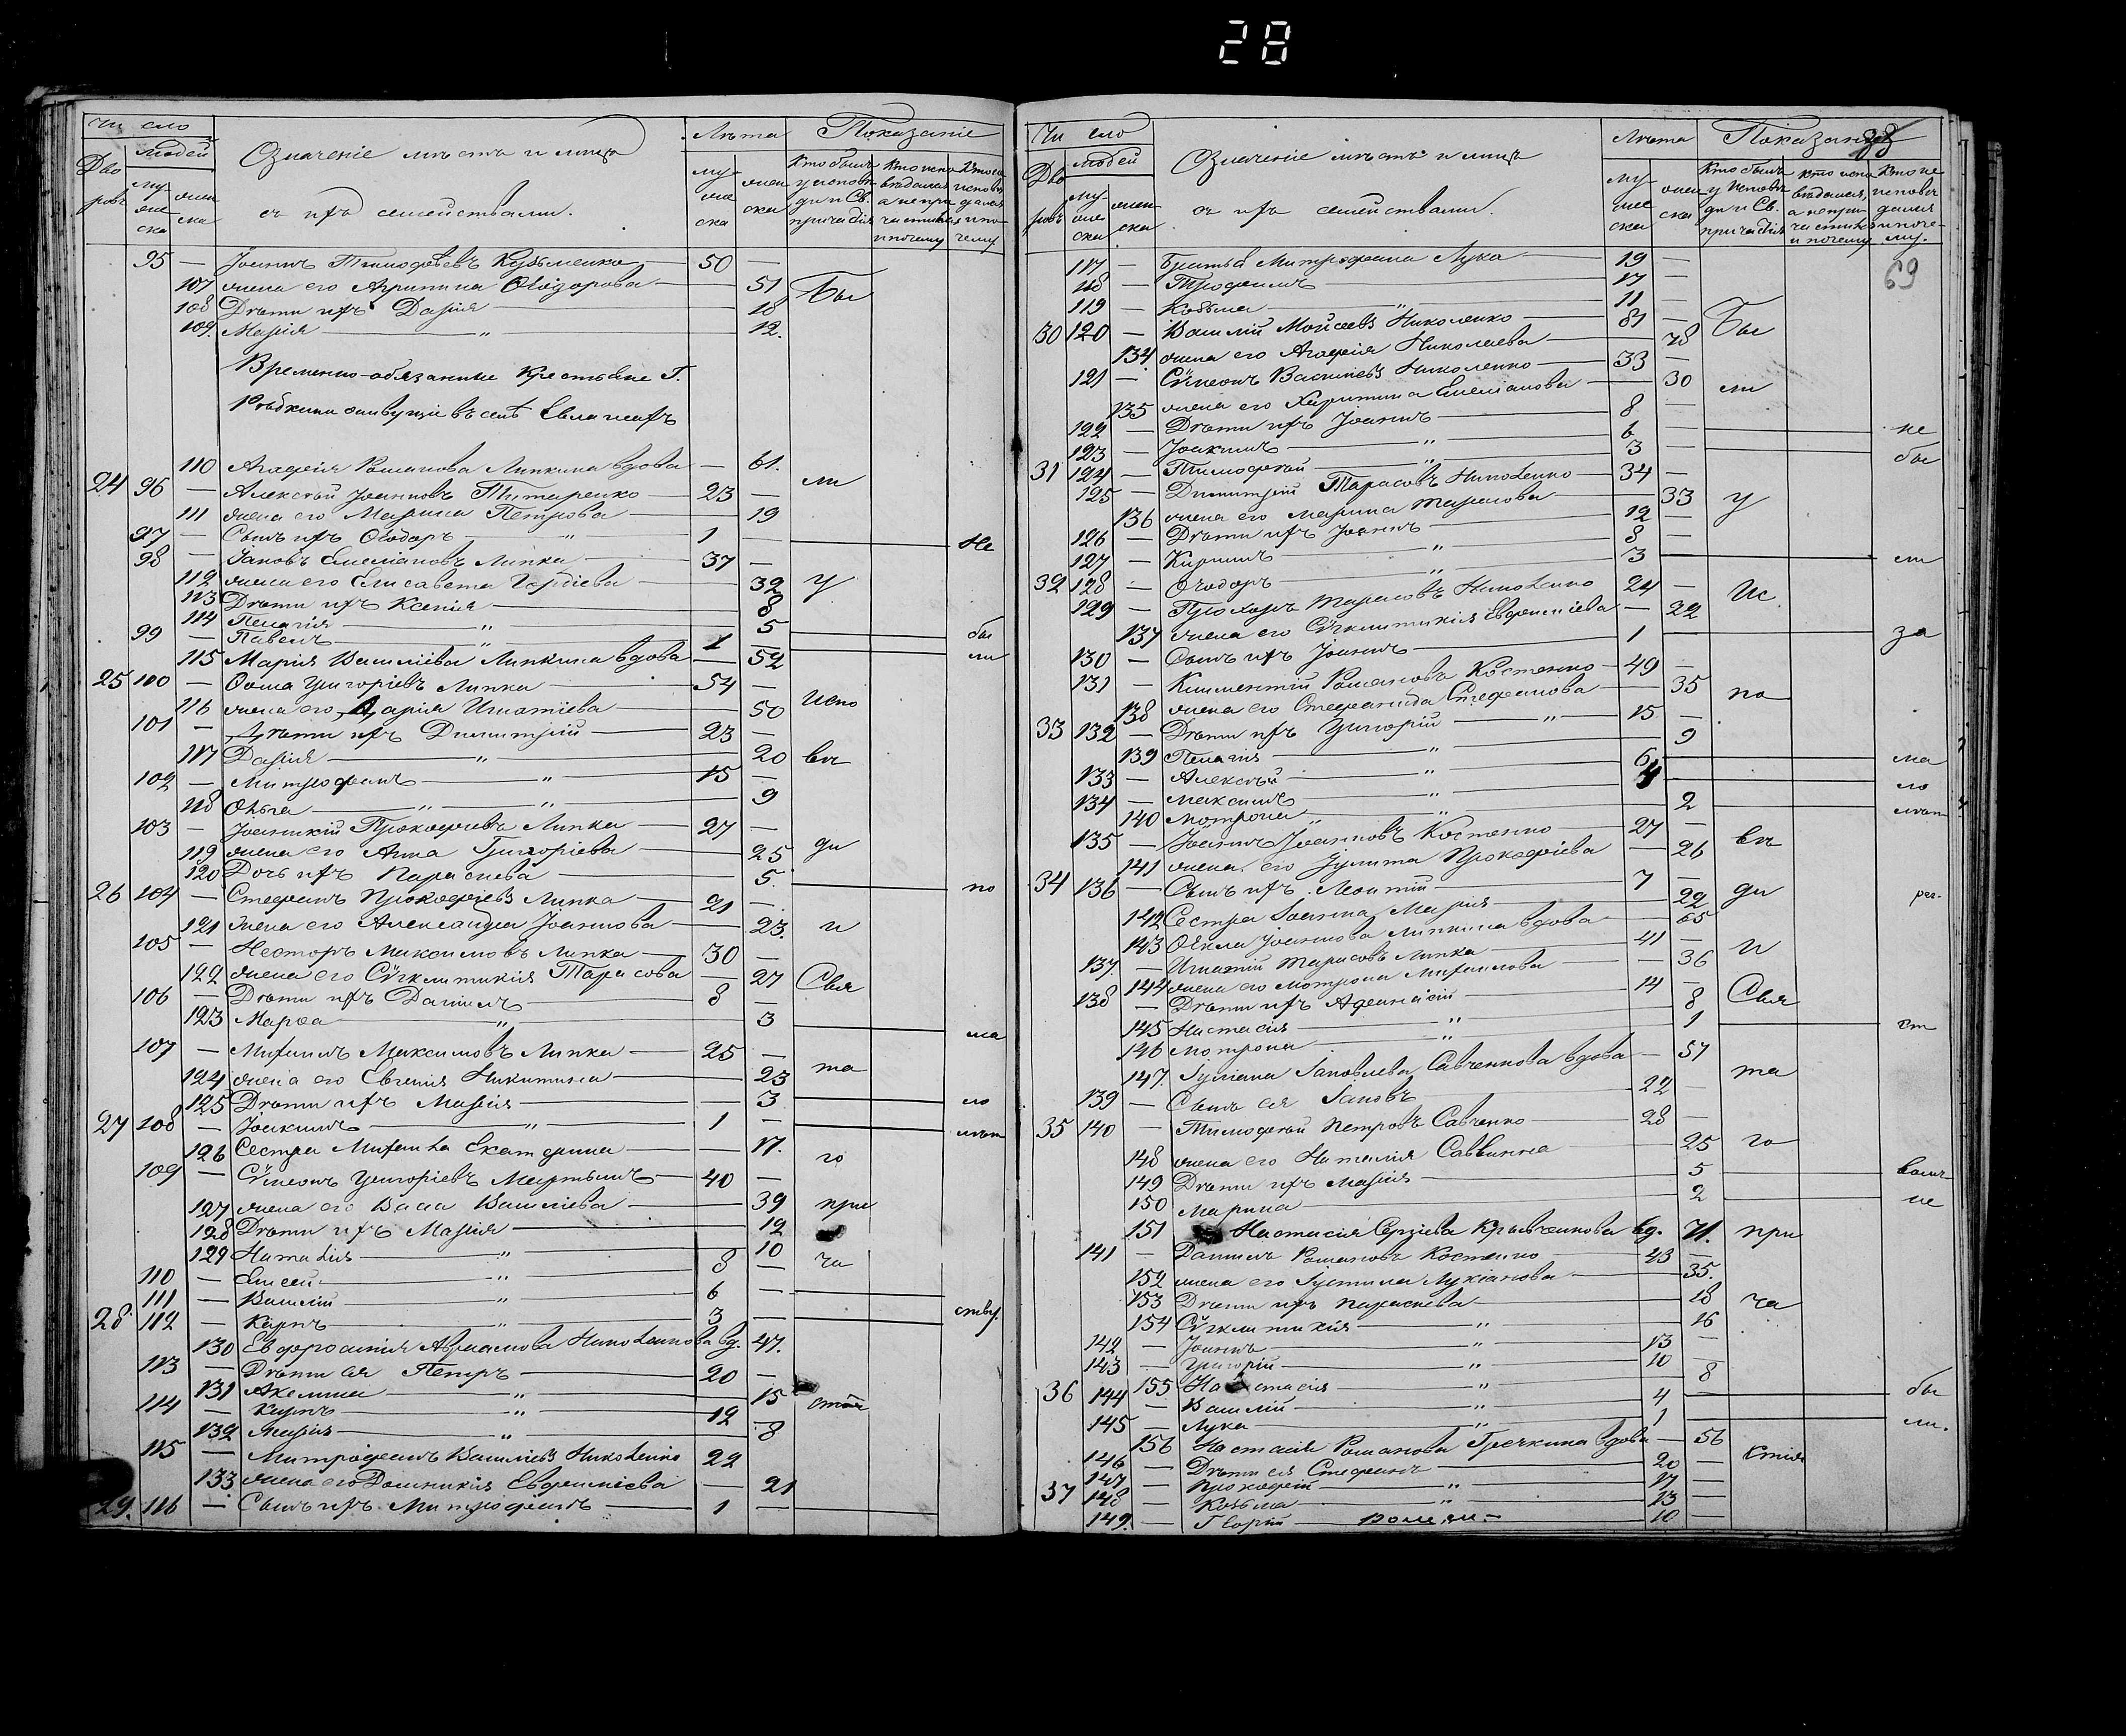 28
Число
Дво
ровъ
Людей
му-
жеска
женска
Означеніе мѣстъ и лицъ
съ ихъ семействами.
Лѣта
му-
жеска
женска
Показаніе
Кто былъ у исповѣди и Св. причастія
Кто исповѣдался, а не причастился и почему
Кто не исповѣдался и почему
95 — Іоаннъ Тимофеевъ Кузьменко 50 —
107 жена его Агрипина Ѳеодорова — 51 Бы
108 Дѣти ихъ Дарія — 18
109. Марія „ 12.
Временно-обязанные Крестьяне Г.
живущіе въ селѣ
110 Агафія Романова Липкина вдова — 61. ли
24 96 — Алексѣй Іоанновъ Титаренко 23 —
111 жена его Марина Петрова — 19
97 — Сынъ ихъ Ѳеодоръ „ 1 — Не
98 — Іаковъ Емеліановъ Липка 37 —
112 жена его Елисавета Гордіева — 32 у
113 Дѣти ихъ Ксенія — 8
114 Пелагія „ 5 бы
99 — Павелъ „ 1 — ли
115 Марія Василіева Липкина вдова — 52
25 100 — Ѳома Григоріевъ Липка 54 —
116 жена его Дарія Игнатіева — 50 испо
101 — Дѣти ихъ Димитрій 23 —
117 Дарія „ 20 вѣ
102 — Митрофанъ „ 15 —
118 Ольга „ „ 9
103 — Іоанникій Прокофіевъ Липка 27 —
119 жена его Анна Григоріева — 25 ди
120 Дочь ихъ Параскева — 5. по
26 104 — Стефанъ Прокофіевъ Липка 21 —
121 жена его Александра Іоаннова — 23. и
105 — Несторъ Максимовъ Липка 30 —
122 жена его Сѵгклитикія Тарасова — 27 Свя
106 — Дѣти ихъ Даніилъ 8 —
123 Марѳа „ 3 ма
107 — Михаилъ Максимовъ Липка 25 —
124 жена его Евгенія Никитина — 23 та
125 Дѣти ихъ Марія — 3 ло
27 108 — Іоакимъ „ 1 — лѣт
126 Сестра Михаила Екатерина — 17. го
109 — Сѵмеонъ Григоріевъ Мартынъ 40 —
127 жена его Васса Василіева — 39 при
128 Дѣти ихъ Марія — 12
129 Наталія „ 10 ча
110 — Елисей „ 8 —
111 — Василій „ 6 —
28 112 — Карпъ „ 3 — ству.
130 Евфросинія Авраамова Николенкова вд. 47.
113 — Дѣти ея Петръ 20 —
131 Акелина „ 15
114 — Карпъ „ 12 —
132 Марія „ 8
115 — Митрофанъ Василіевъ Николенко 22
133 жена его Домникія Евфиміева — 21
29. 116 — Сынъ ихъ Митрофанъ 1 —
Число
Дво
ровъ
людей
му-
жеска
женска
Означеніе мѣстъ и лицъ
съ ихъ семействами.
Лѣта
му-
жеска
женска
Показаніе
Кто былъ у Исповѣди и Св. причастія
кто исповѣдался, а не причастился и почему
кто не исповѣдался и почему.
69
117 — Братья Митрофана Лука 19 —
118 — Трофимъ 17 —
119 — Козьма „ 11 —
30 120 — Василій Моисеевъ Николенко 81 — Бы
134 жена его Агафія Николаева — 78
121 — Сѵмеонъ Василіевъ Николенко 33 —
135 жена его Харитина Емеліанова — 30 ли
122 — Дѣти ихъ Іоаннъ 8 —
123 — Іоакимъ „ 6 — не
31 124 — Тимофей „ 3 — бы
125 — Димитрій Тарасовъ Николенко 34 —
136 жена его Марина Тарасова — 33 у
126 — Дѣти ихъ Іоаннъ 12 —
127 — Кириллъ „ 8
32 128 — Ѳеодоръ „ 3 ли
129 — Прохоръ Тарасовъ Николенко 24 — Ис
137 жена его Сѵгклитикія Евфиміева — 22
130 — Сынъ ихъ Іоаннъ 1 за
131 — Климентій Романовъ Костенко 49 —
138 жена его Стефанида Стефанова — 35 по
33 132 — Дѣти ихъ Григорій „ 15 —
139 Пелагія „ 9
133 — Алексѣй „ 6 ма
134 — Максимъ „ 4 ло
140 Мотрона „ 2 лѣт
135 — Іоаннъ Іоанновъ Костенко 27 — вѣ
141 жена его Іулита Прокофіева — 26
34 136 — Сынъ ихъ Леонтій 7 — ди
142 Сестра Іоанна Марія — 22
143 Ѳекла Іоаннова Липкина вдова — 65
137 — Игнатій Тарасовъ Липка 41 — и
144 жена его Мотрона Михаилова — 36
138 — Дѣти ихъ Афанасій 14 — Свя
145 Настасія „ 8
146 Мотрона „ 1 ст
147. Іуліана Іаковлева Савченкова вдова — 57
139 — Сынъ ея Іаковъ 22 — та
35 140 — Тимофей Петровъ Савченко 28 —
148 жена его Наталія Саввична 25 го
149 Дѣти ихъ Марія 5
150 Марина 2 не
151 Настасія Сергіева Кравченкова вд. 71. при
141 — Даніилъ Романовъ Костенко 43 —
152 жена его Іустина Лукіанова 35.
153 Дѣти ихъ Параскева 18 ча
154 Сѵгклитикія „ 16
142 — Іоаннъ „ 13 —
143 — Григорій „ 10 —
155 Настасія „ 8
36 144 — Василій „ 4 — бы
145 — Лука „ 1 ли.
156 Настасія Романова Гречкина вдова — 56
146 — Дѣти ея Стефанъ 20 — стія
147 — Прокофій „ 17 —
37 148 — Козьма „ 13 —
149. — Георгій 10 —